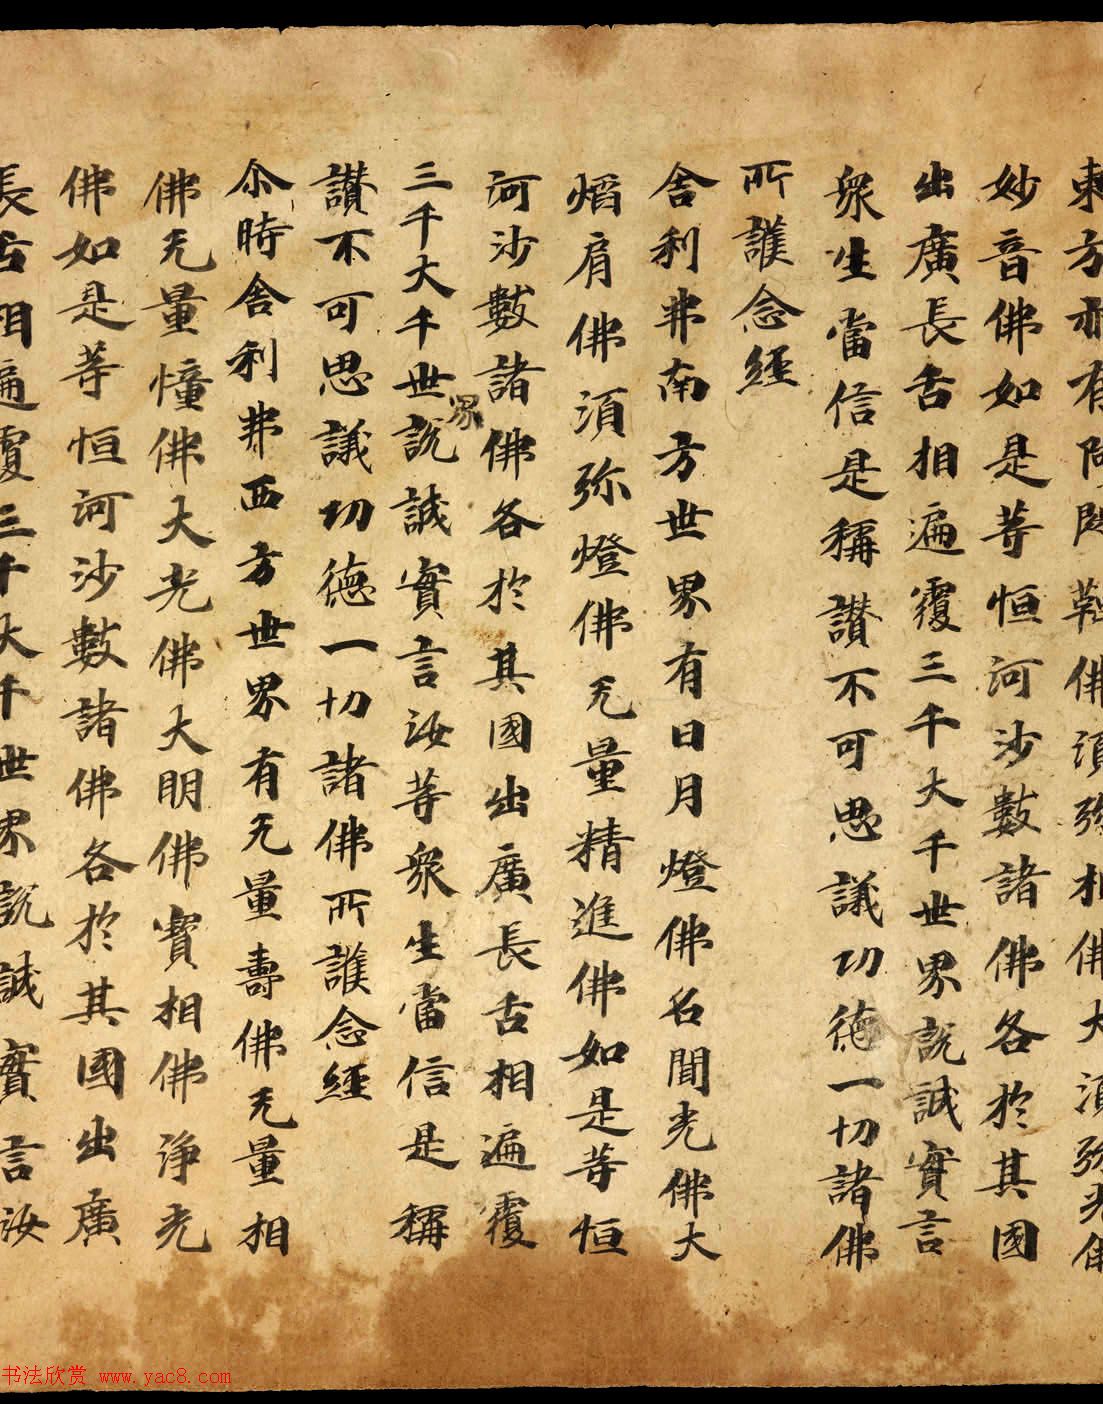 東方亦有阿閦鞞佛須弥相佛大須弥光佛
妙音佛如是等恒河沙數諸佛各於其國
出廣長舌相遍覆三千大千世界說誠實言
衆生當信是稱讚不可思議功德一切諸佛
所護念經
舍利弗南方世界有日月燈佛名聞光佛大
焰肩佛須弥燈佛无量精進佛如是等恒
河沙數諸佛各於其國出廣長舌相遍覆
三千大千世界說誠實言汝等衆生當信是稱
讚不可思議功德一切諸佛所護念經
尒時舍利弗西方世界有无量壽佛无量相
佛无量幢佛大光佛大明佛寶相佛淨光
佛如是等恒河沙數諸佛各於其國出廣
長舌相遍覆三千大千世界說誠實言汝
书法欣赏 www.yac8.com